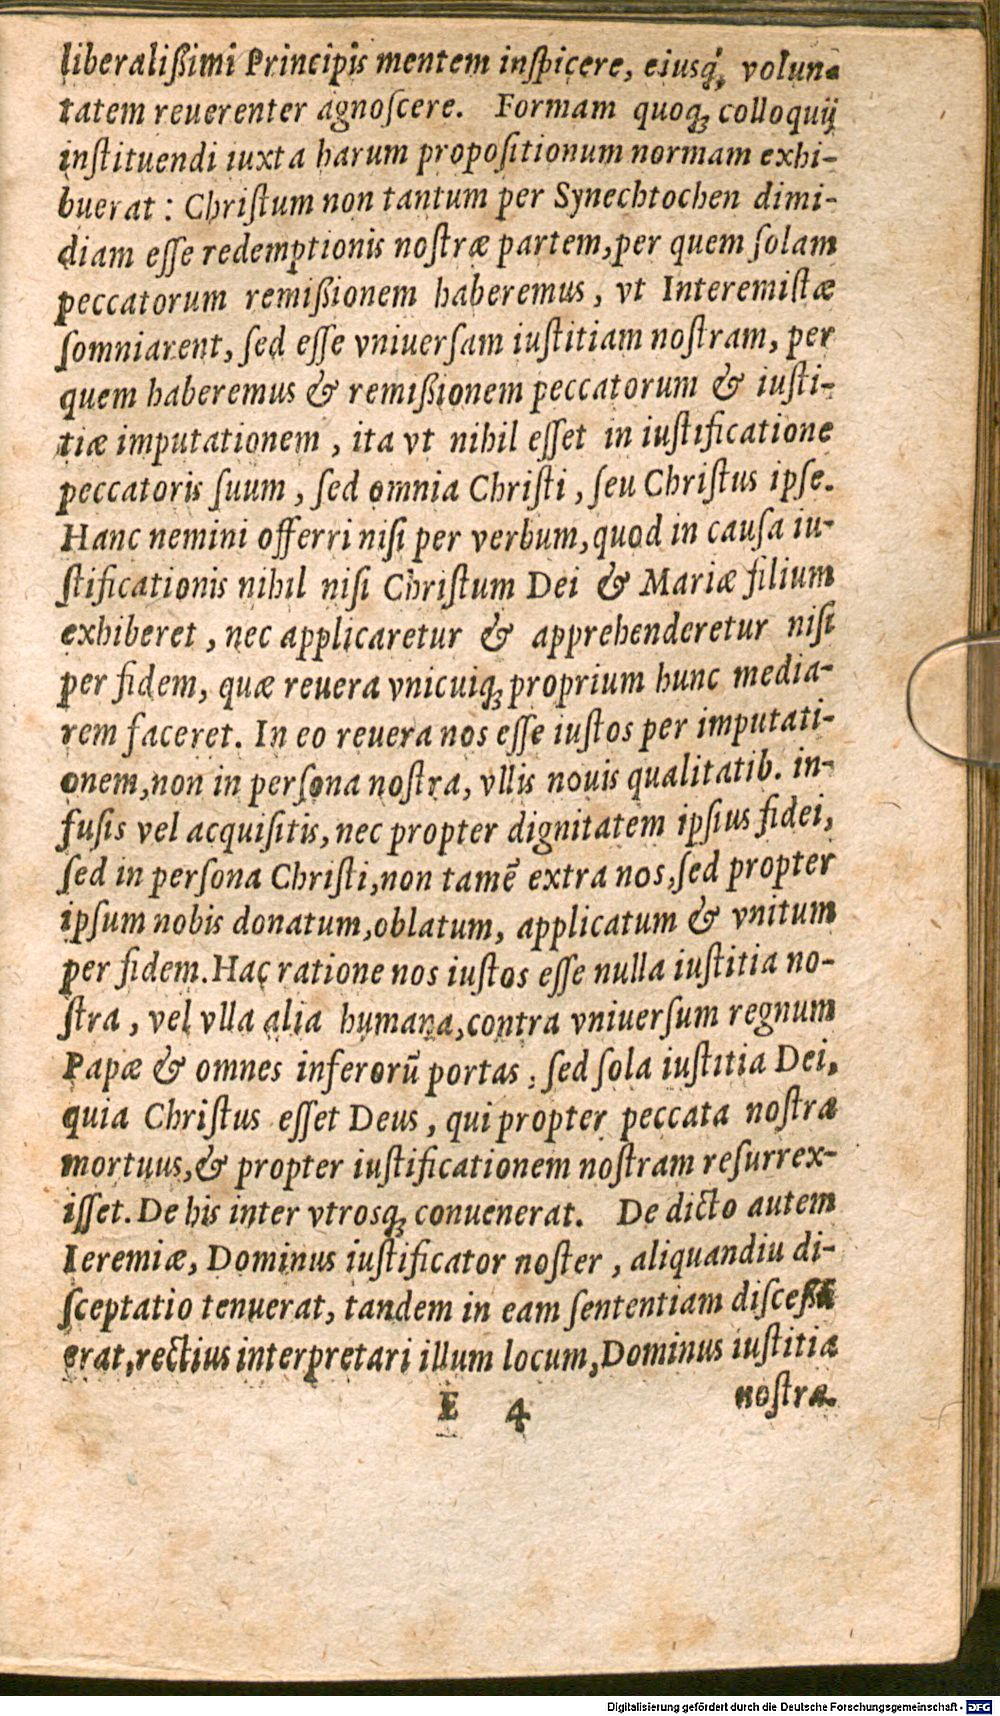 liberalißimi Principis mentem inſpicere, eiusq́ꝫ volun-
tatem reuerenter agnoſcere. Formam quoqꝫ colloquij
inſtituendi iuxta harum propoſitionum normam exhi-
buerat : Chriſtum non tantum per Synechtochen dimi-
diam eſſe redemptionis noſtræ partem, per quem ſolam
peccatorum remißionem haberemus, vt Interemiſtæ
ſomniarent, ſed eſſe vniuerſam iuſtitiam noſtram, per
quem haberemus & remißionem peccatorum & iuſti-
tiæ imputationem, ita vt nihil eſſet in iuſtificatione
peccatoris ſuum, ſed omnia Chriſti, ſeu Chriſtus ipſe.
Hanc nemini offerri niſi per verbum, quod in cauſa iu-
ſtificationis nihil niſi Chriſtum Dei & Mariæ filium
exhiberet, nec applicaretur & apprehenderetur niſi
per fidem, quæ reuera vnicuiqꝫ proprium hunc media-
rem faceret. In eo reuera nos eſſe iuſtos per imputati-
onem, non in perſona noſtra, vllis nouis qualitatib. in-
fuſis vel acquiſitis, nec propter dignitatem ipſius fidei,
ſed in perſona Chriſti, non tamē extra nos, ſed propter
ipſum nobis donatum, oblatum, applicatum & vnitum
per fidem. Hac ratione nos iuſtos eſſe nulla iuſtitia no-
ſtra, vel vlla alia humana, contra vniuerſum regnum
Papæ & omnes inferorū portas : ſed ſola iuſtitia Dei,
quia Chriſtus eſſet Deus, qui propter peccata noſtra
mortuus, & propter iuſtificationem noſtram reſurrex-
iſſet. De his inter vtrosqꝫ conuenerat. De dicto autem
Ieremiæ, Dominus iuſtificator noſter, aliquandiu di-
ſceptatio tenuerat, tandem in eam ſententiam diſceßi
erat, rectius interpretari illum locum, Dominus iuſtitia
noſtra.
E 4
Digitalisierung gefördert durch die Deutsche Forschungsgemeinschaft - DFG